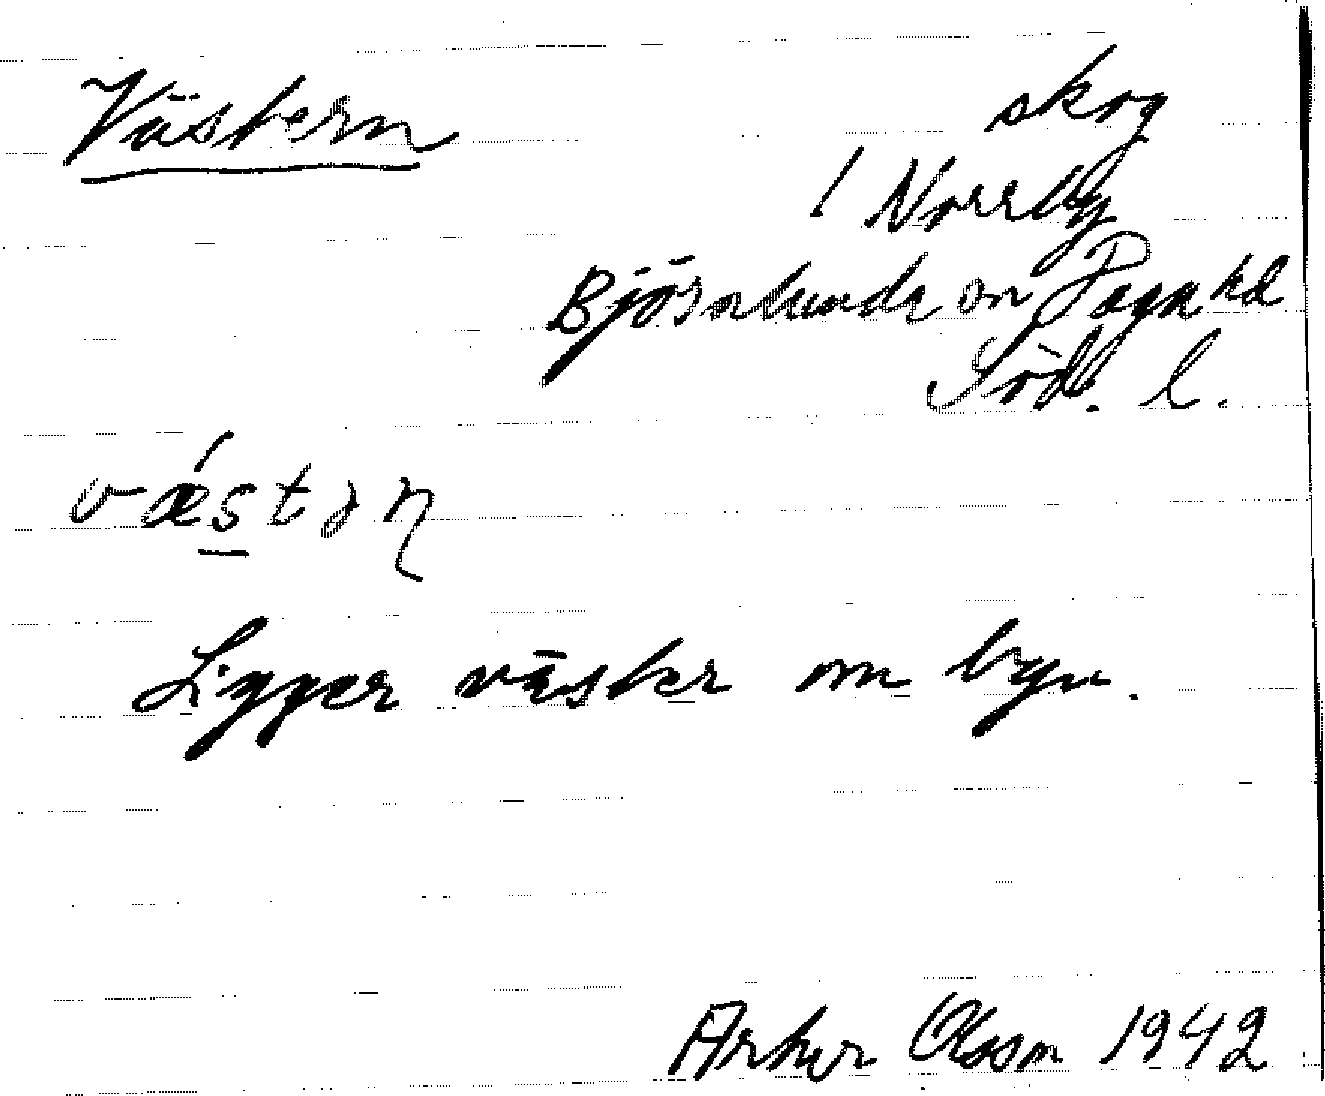 Västern
skog
/ Norrby
Björnlunda sn Daga hd
Söd. l.
væ´stəṇ
Ligger väster om byn.
Artur Olsson 1942